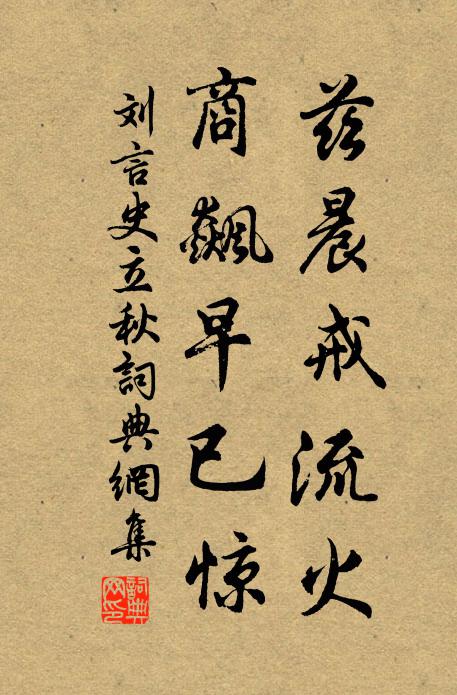 兹晨戒流火
商飙早已惊
刘言史立秋词典網集
詞典网印